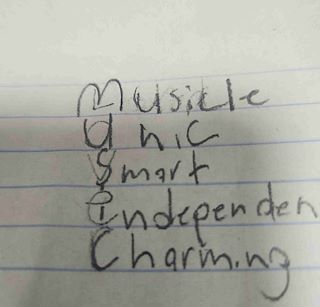 Musicle
Unic
Smart
independen
Charming